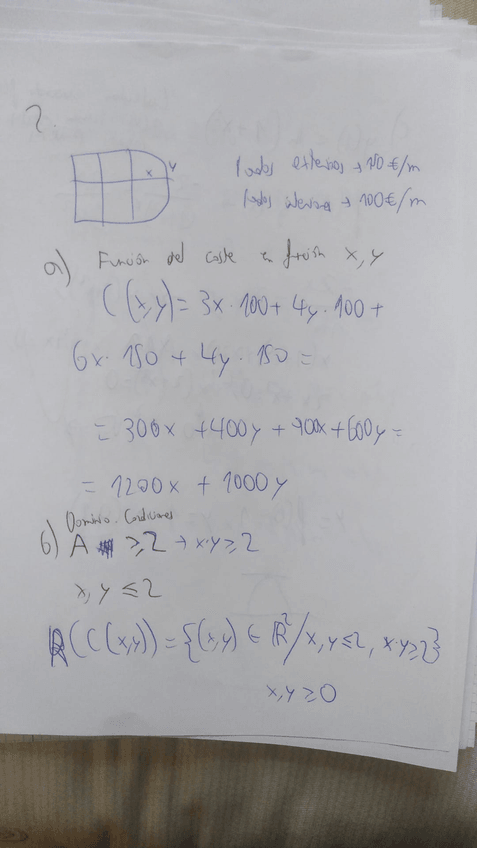 2.
x y
lados exteriores → 150 €/m
lados interiores → 100 €/m
a) Función del coste en función x, y
C(x,y) = 3x · 100 + 4y · 100 +
6x · 150 + 4y · 150 =
= 300x + 400y + 900x + 600y =
= 1200x + 1000y
Dominio. Condiciones
b) A ≥ 2 → x·y ≥ 2
x, y ≤ 2
(C(x,y)) = {(x,y) ∈ ℝ² / x, y ≤ 2, x·y ≥ 2}
x, y ≥ 0